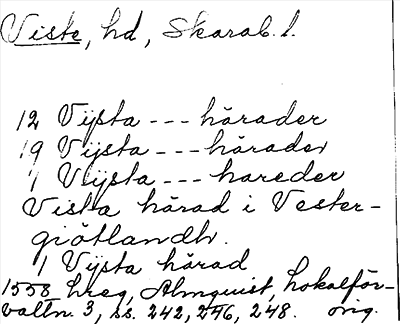 Viste, hd, Skarab. l.
12 Vÿsta --- härader
19 Vÿsta --- härader
1 Vÿsta --- hareder
Vista härad i Vester-
giötlandh.
1 Vÿsta härad
1558 hreg, Almquist, Lokalför-
valtn. 3, ss. 242, 246, 248. orig.